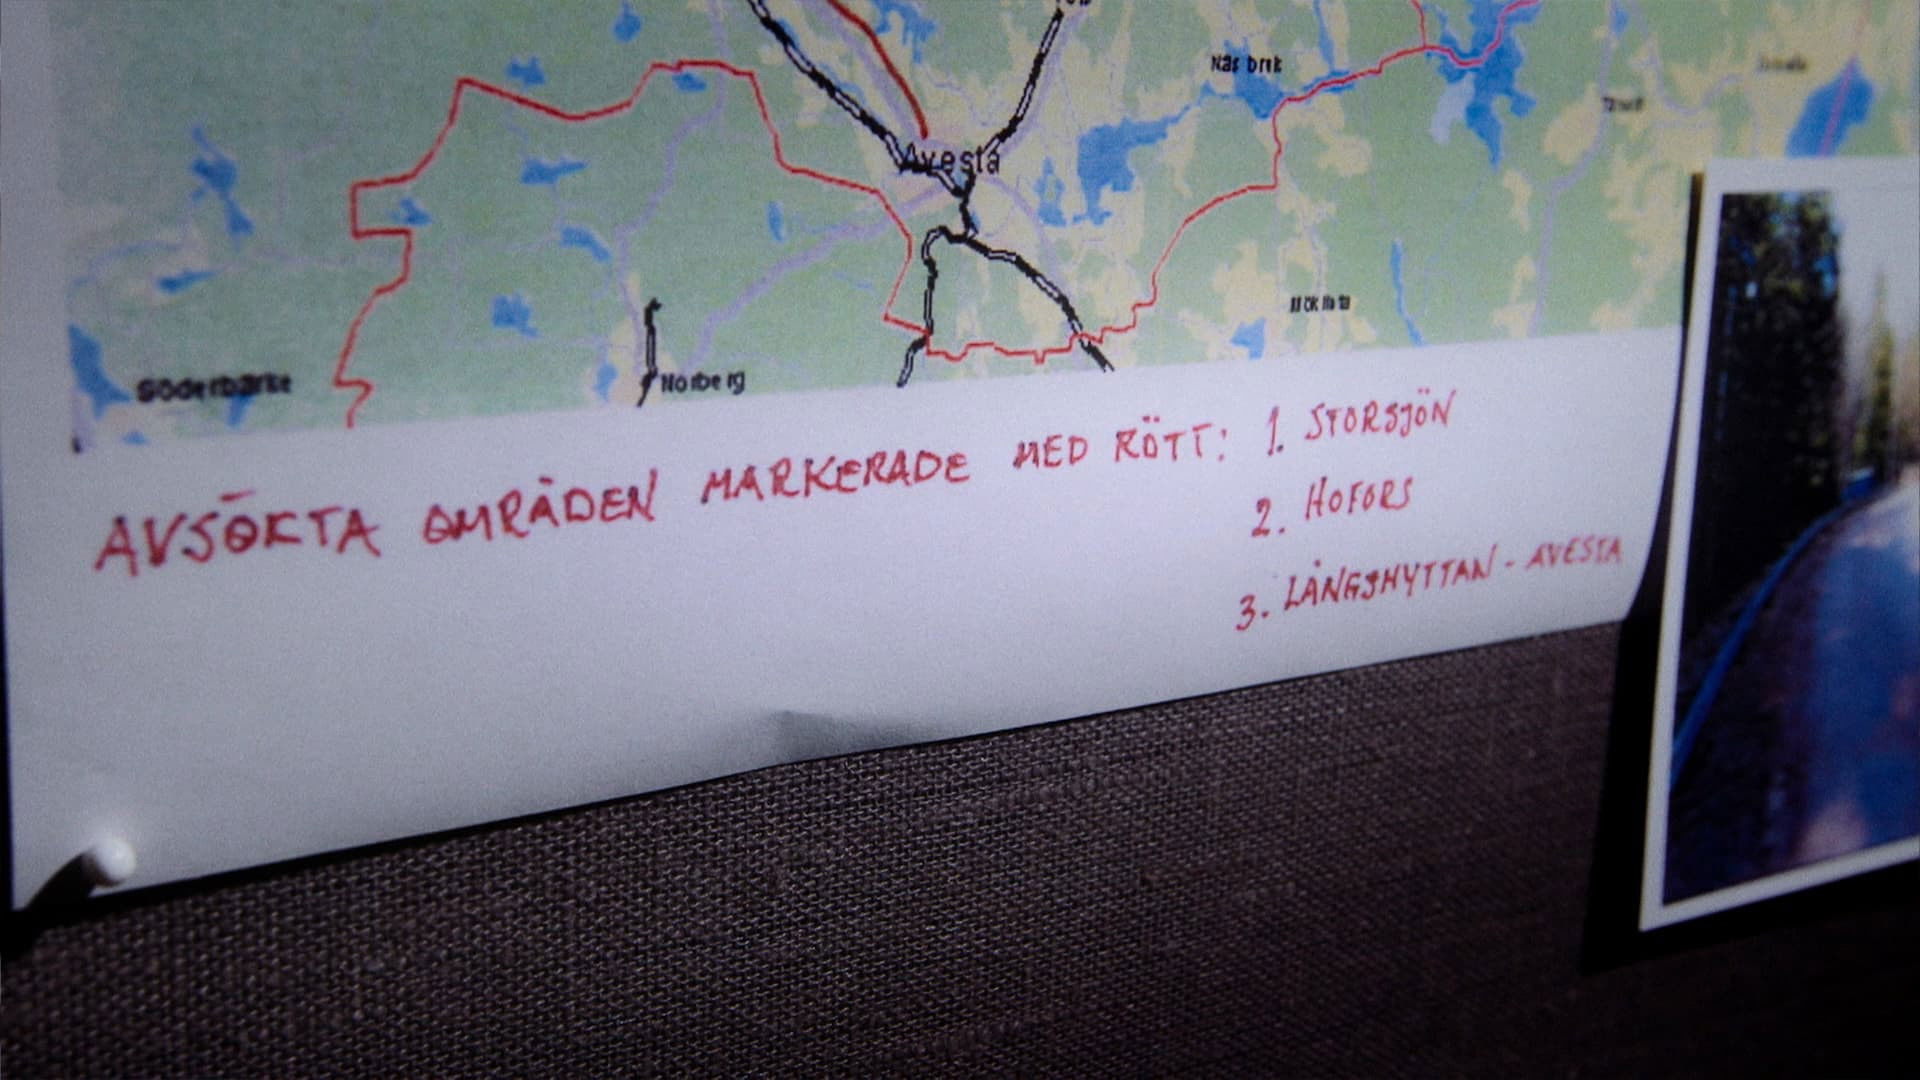 Näsbruk
Avesta
Söderbärke
Norberg
AVSÖKTA OMRÅDEN MARKERADE MED RÖTT: 1. STORSJÖN
2. HOFORS
3. LÅNGSHYTTAN - AVESTA